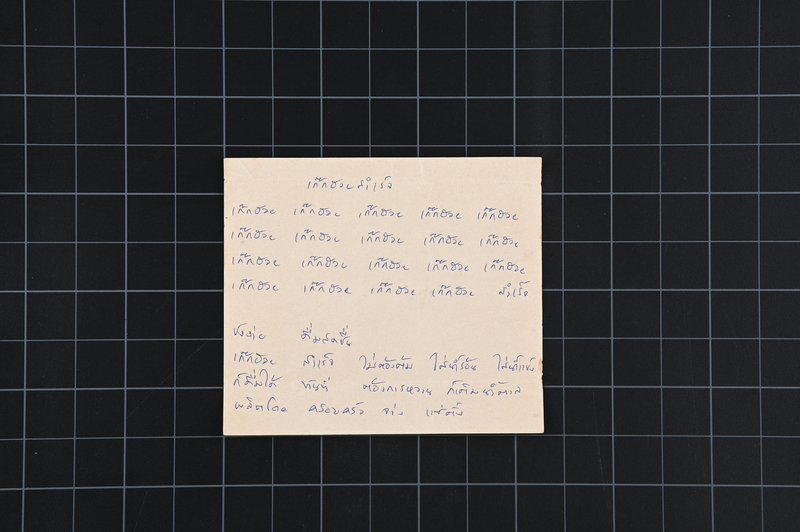 เก๊กฮวยสำเร็จ
เก๊กฮวย เก๊กฮวย เก๊กฮวย เก๊กฮวย เก๊กฮวย
เก๊กฮวย เก๊กฮวย เก๊กฮวย เก๊กฮวย เก๊กฮวย
เก๊กฮวย เก๊กฮวย เก๊กฮวย เก๊กฮวย เก๊กฮวย
เก๊กฮวย เก๊กฮวย เก๊กฮวย เก๊กฮวย สำเร็จ
ชงง่าย ดื่มสดชื่น
เก๊กฮวย สำเร็จ ไม่ต้องต้ม ใส่น้ำร้อน ใส่น้ำแข็ง
ก็ดื่มได้ ทันที ต้องการหวาน ก็เติมน้ำตาล
ผลิตโดย ครอบครัว